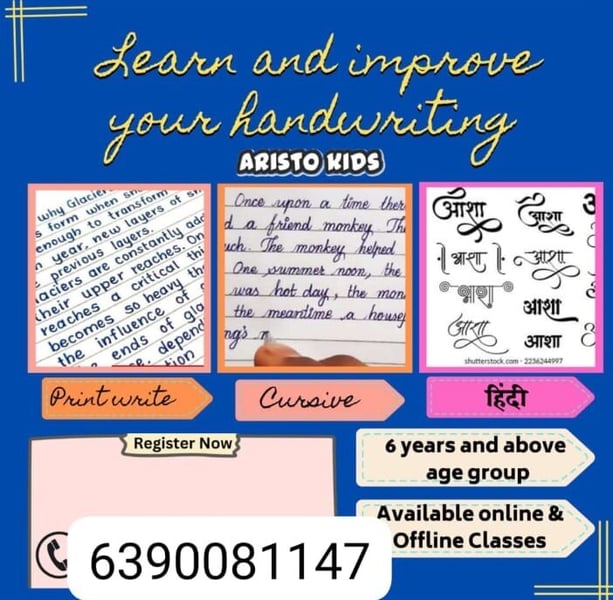 Learn and improve
your handwriting
ARISTO KIDS
why Glacier
s form when sn
enough to transform
n year, new layers of sn
previous layers.
aciers are constantly add
heir upper reaches. On
reaches a critical thi
becomes so heavy th
the influence of g
ends of gla
depend
tion
Once upon a time ther
d a friend monkey. Th
uch. The monkey helped
One summer noon, the
was hot day, the mon
the meantime a housef
ng's
आशा आशा
आशा आशा
आशा आशा
आशा आशा
shutterstock.com · 2236244997
Print write
Cursive
हिंदी
Register Now
6 years and above
age group
Available online &
Offline Classes
6390081147